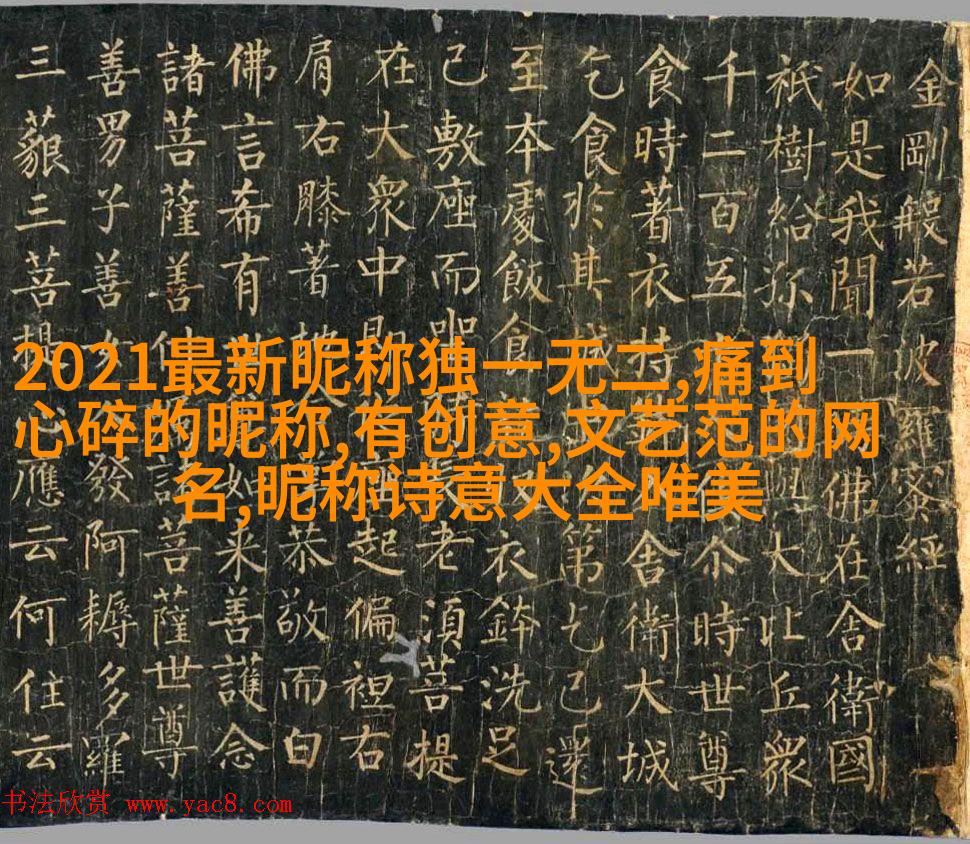 金剛般若波羅蜜經
如是我聞一佛在舍衛國
祇樹給孤與大比丘眾
千二百五尒時世尊
食時著衣持舍衛大城
乞食於其城第乞已還
至本處飯食衣鉢洗足
已敷座而長老須菩提
在大眾中即起偏袒右
肩右膝著恭敬而白
佛言希有如来善護念
諸菩薩善付諸菩薩世尊
善男子善女發阿耨多羅
三藐三菩提心應云何住云
2021最新昵称独一无二,痛到
心碎的昵称,有创意,文艺范的网
名,昵称诗意大全唯美
书法欣赏 www.yac8.com